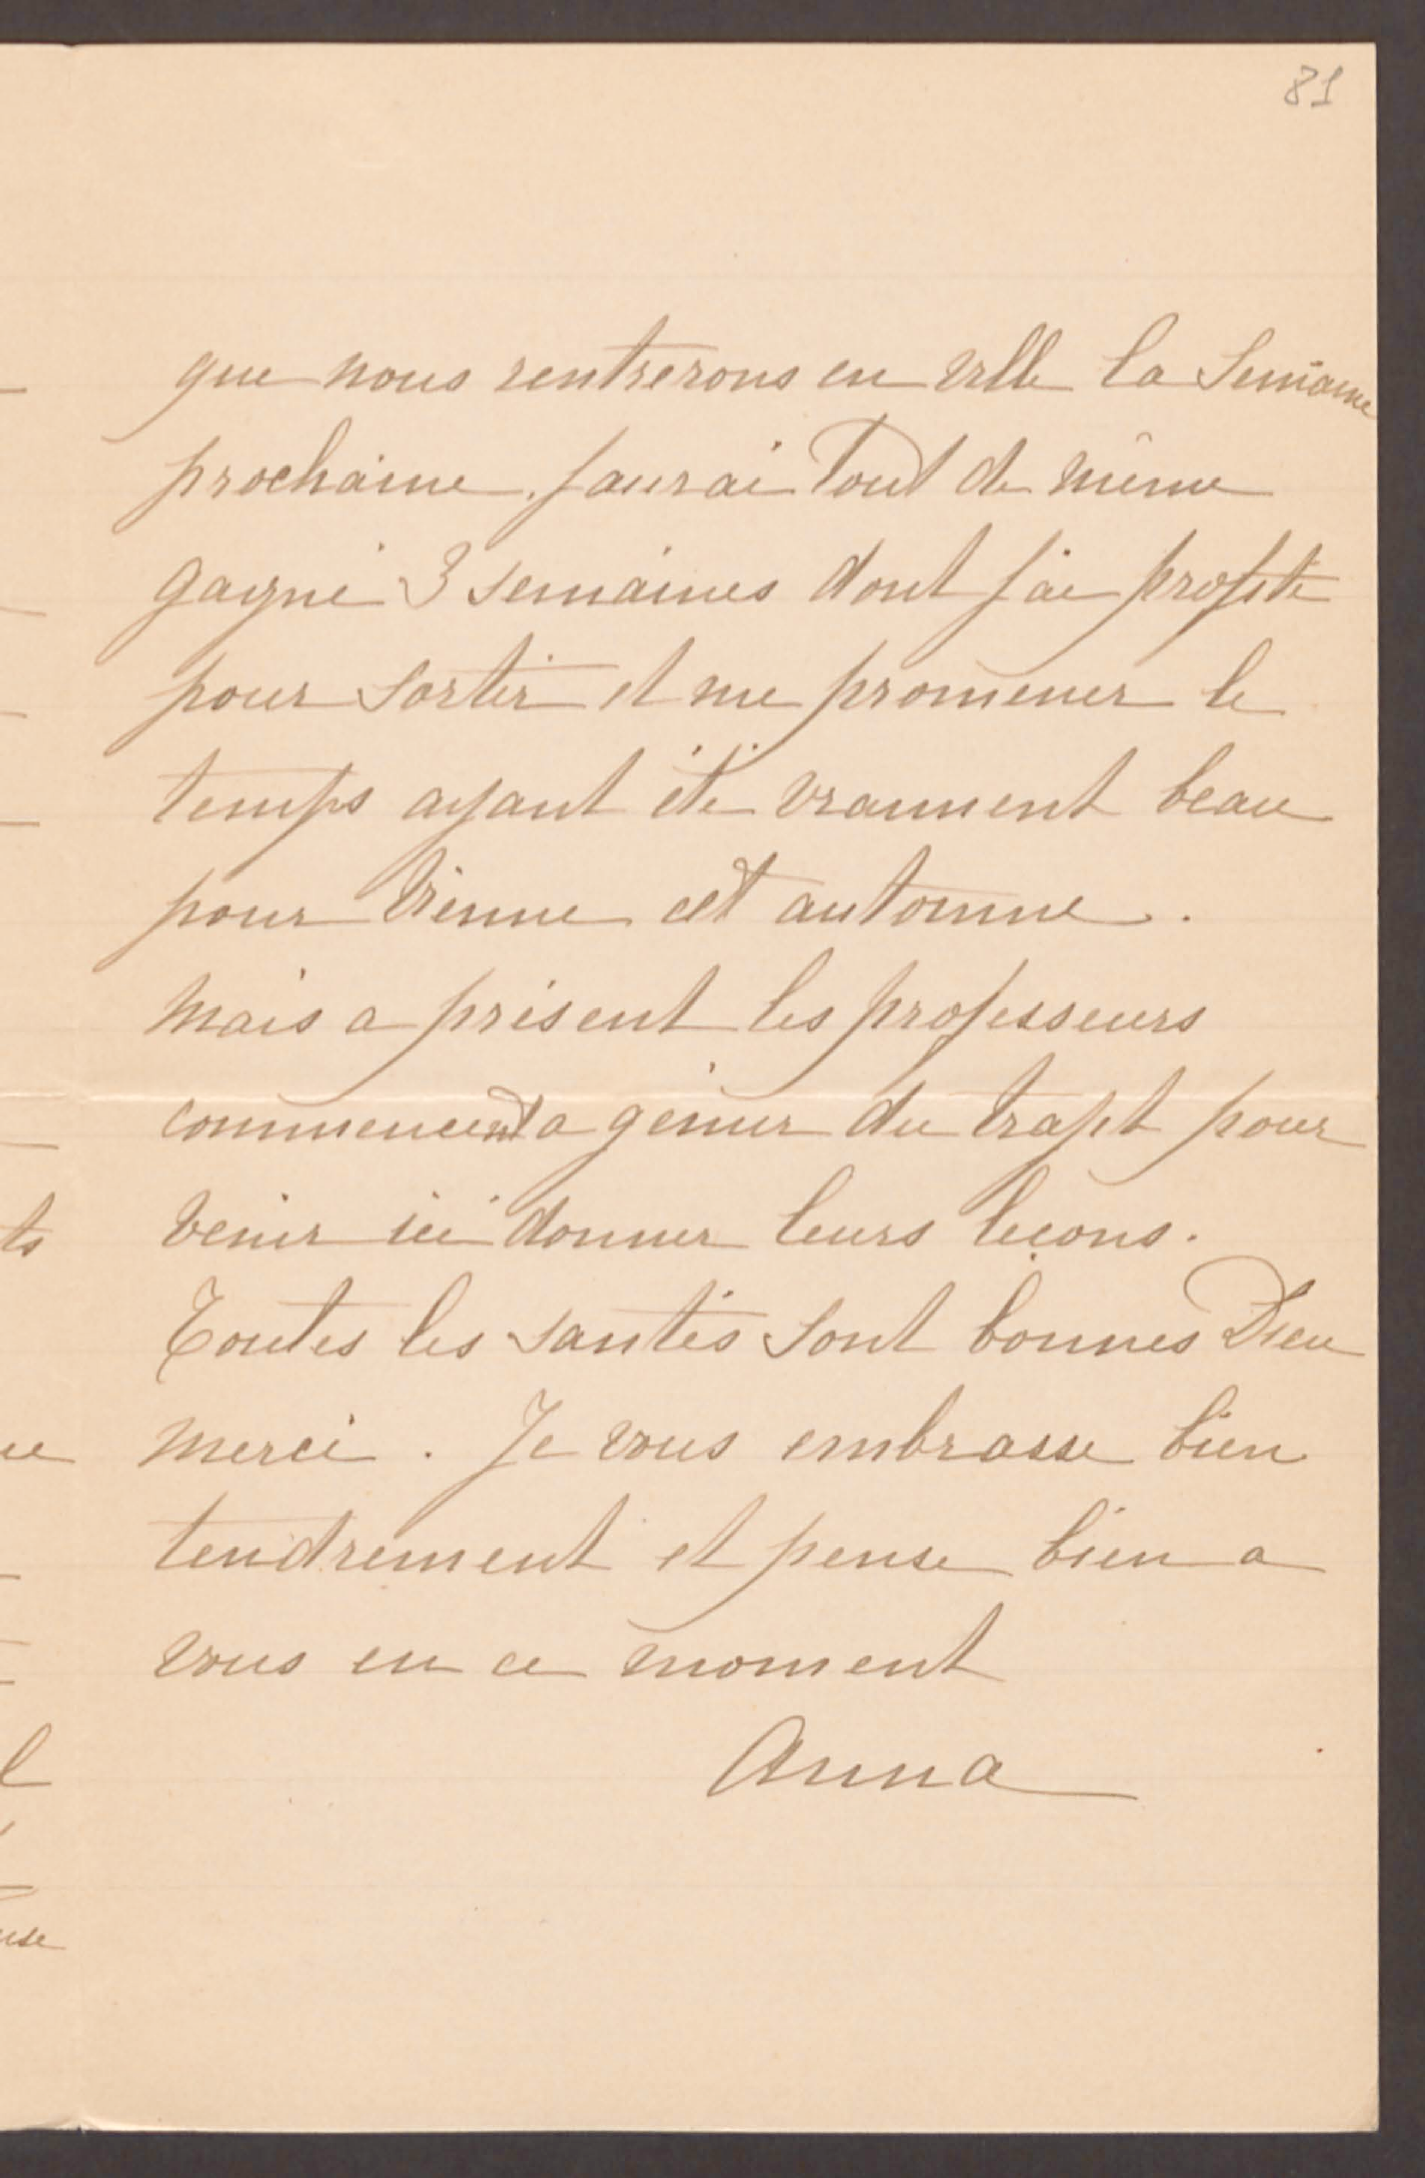 81
que nous rentrerons en ville la Semaine
prochaine. J'aurai Tout de même
gagné 3 semaines dont j'ai profité
pour sortir et me promener le
temps ayant été vraiment beau
pour Vienne cet automne.
Mais a présent les professeurs
commencent a gémir du trajet pour
venir ici donner leurs leçons.
Toutes les santés sont bonnes Dieu
ts
merci. Je vous embrasse bien
tendrement et pense bien a
vous en ce moment
Anna